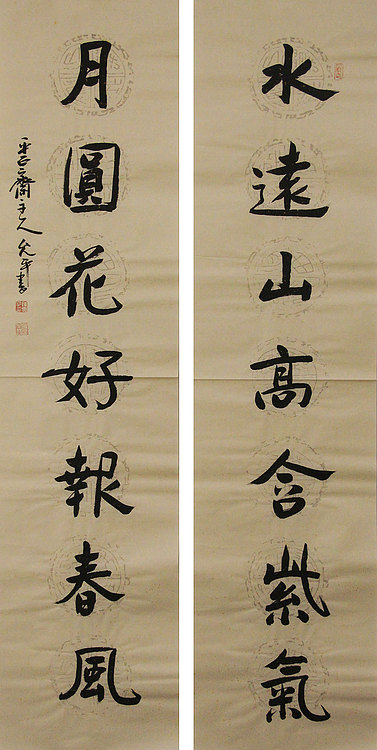 水遠山高含紫氣
月圓花好報春風
平正齋主人光平書